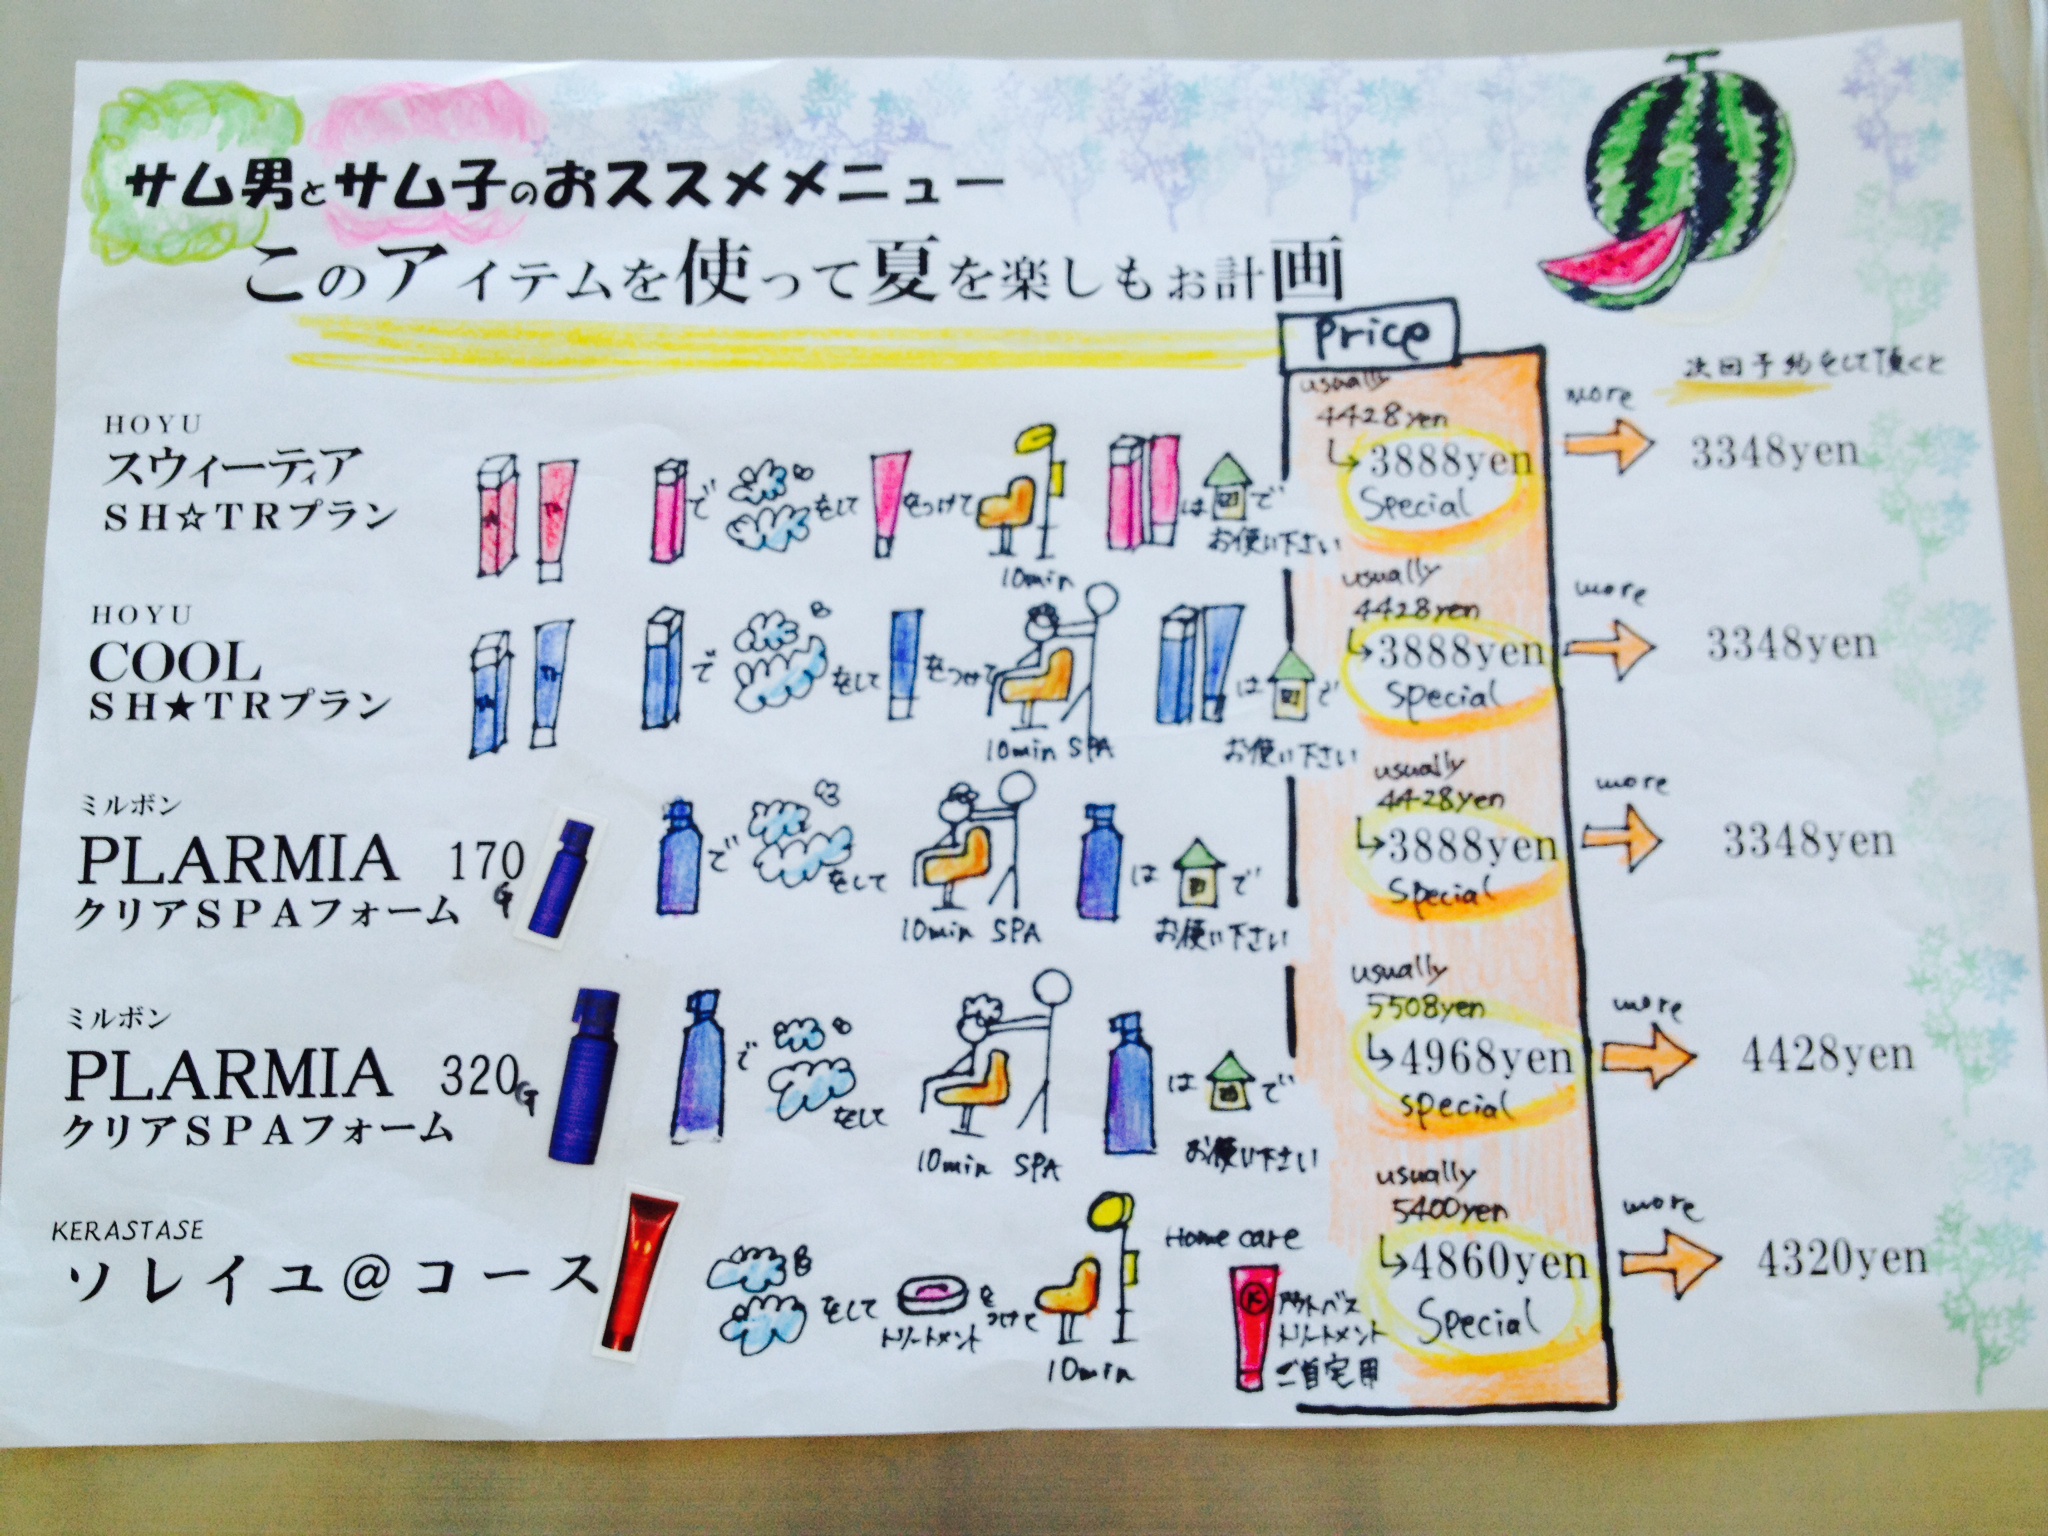 サム男とサム子のおススメメニュー
このアイテムを使って夏を楽しもぉ計画
Price
次回予約をして頂くと
HOYU
スウィーティア
SH☆TRプラン
で
をして
をつけて
10min
は
で
お使い下さい
usually
4428yen
3888yen
Special
more
3348yen
HOYU
COOL
SH★TRプラン
で
をして
をつけて
10min SPA
は
で
お使い下さい
usually
4428yen
3888yen
special
more
3348yen
ミルボン
PLARMIA 170G
クリアSPAフォーム
で
をして
10min SPA
は
で
お使い下さい
usually
4428yen
3888yen
special
more
3348yen
ミルボン
PLARMIA 320G
クリアSPAフォーム
で
をして
10min SPA
は
で
お使い下さい
usually
5508yen
4968yen
special
more
4428yen
KERASTASE
ソレイユ@コース
をして
トリートメント
をつけて
10min
Home care
K
アウトバス
トリートメント
ご自宅用
usually
5400yen
4860yen
Special
more
4320yen